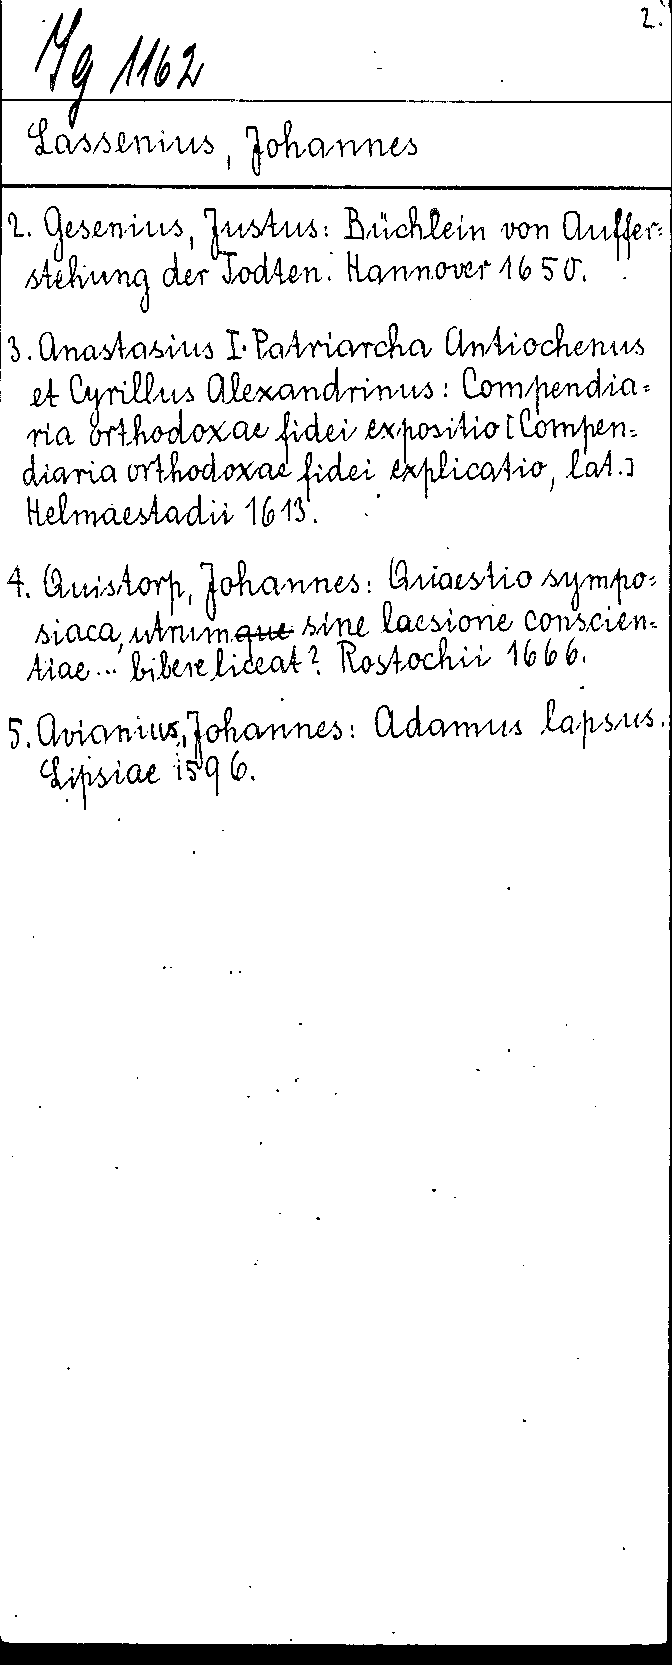 2.
Yg 1162
Lassenius, Johannes
2. Gesenius, Justus: Büchlein von Auffer=
stehung der Todten. Hannover 1650.
3. Anastasius I. Patriarcha Antiochenus
et Cyrillus Alexandrinus: Compendia=
ria orthodoxae fidei expositio [Compen=
diaria orthodoxae fidei explicatio, lat.]
Helmaestadii 1613.
4. Quistorp, Johannes: Quaestio sympo=
siaca, utrumque sine laesione conscien=
tiae... bibere liceat? Rostochii 1666.
5. Avianius, Johannes: Adamus lapsus.
Lipsiae 1596.